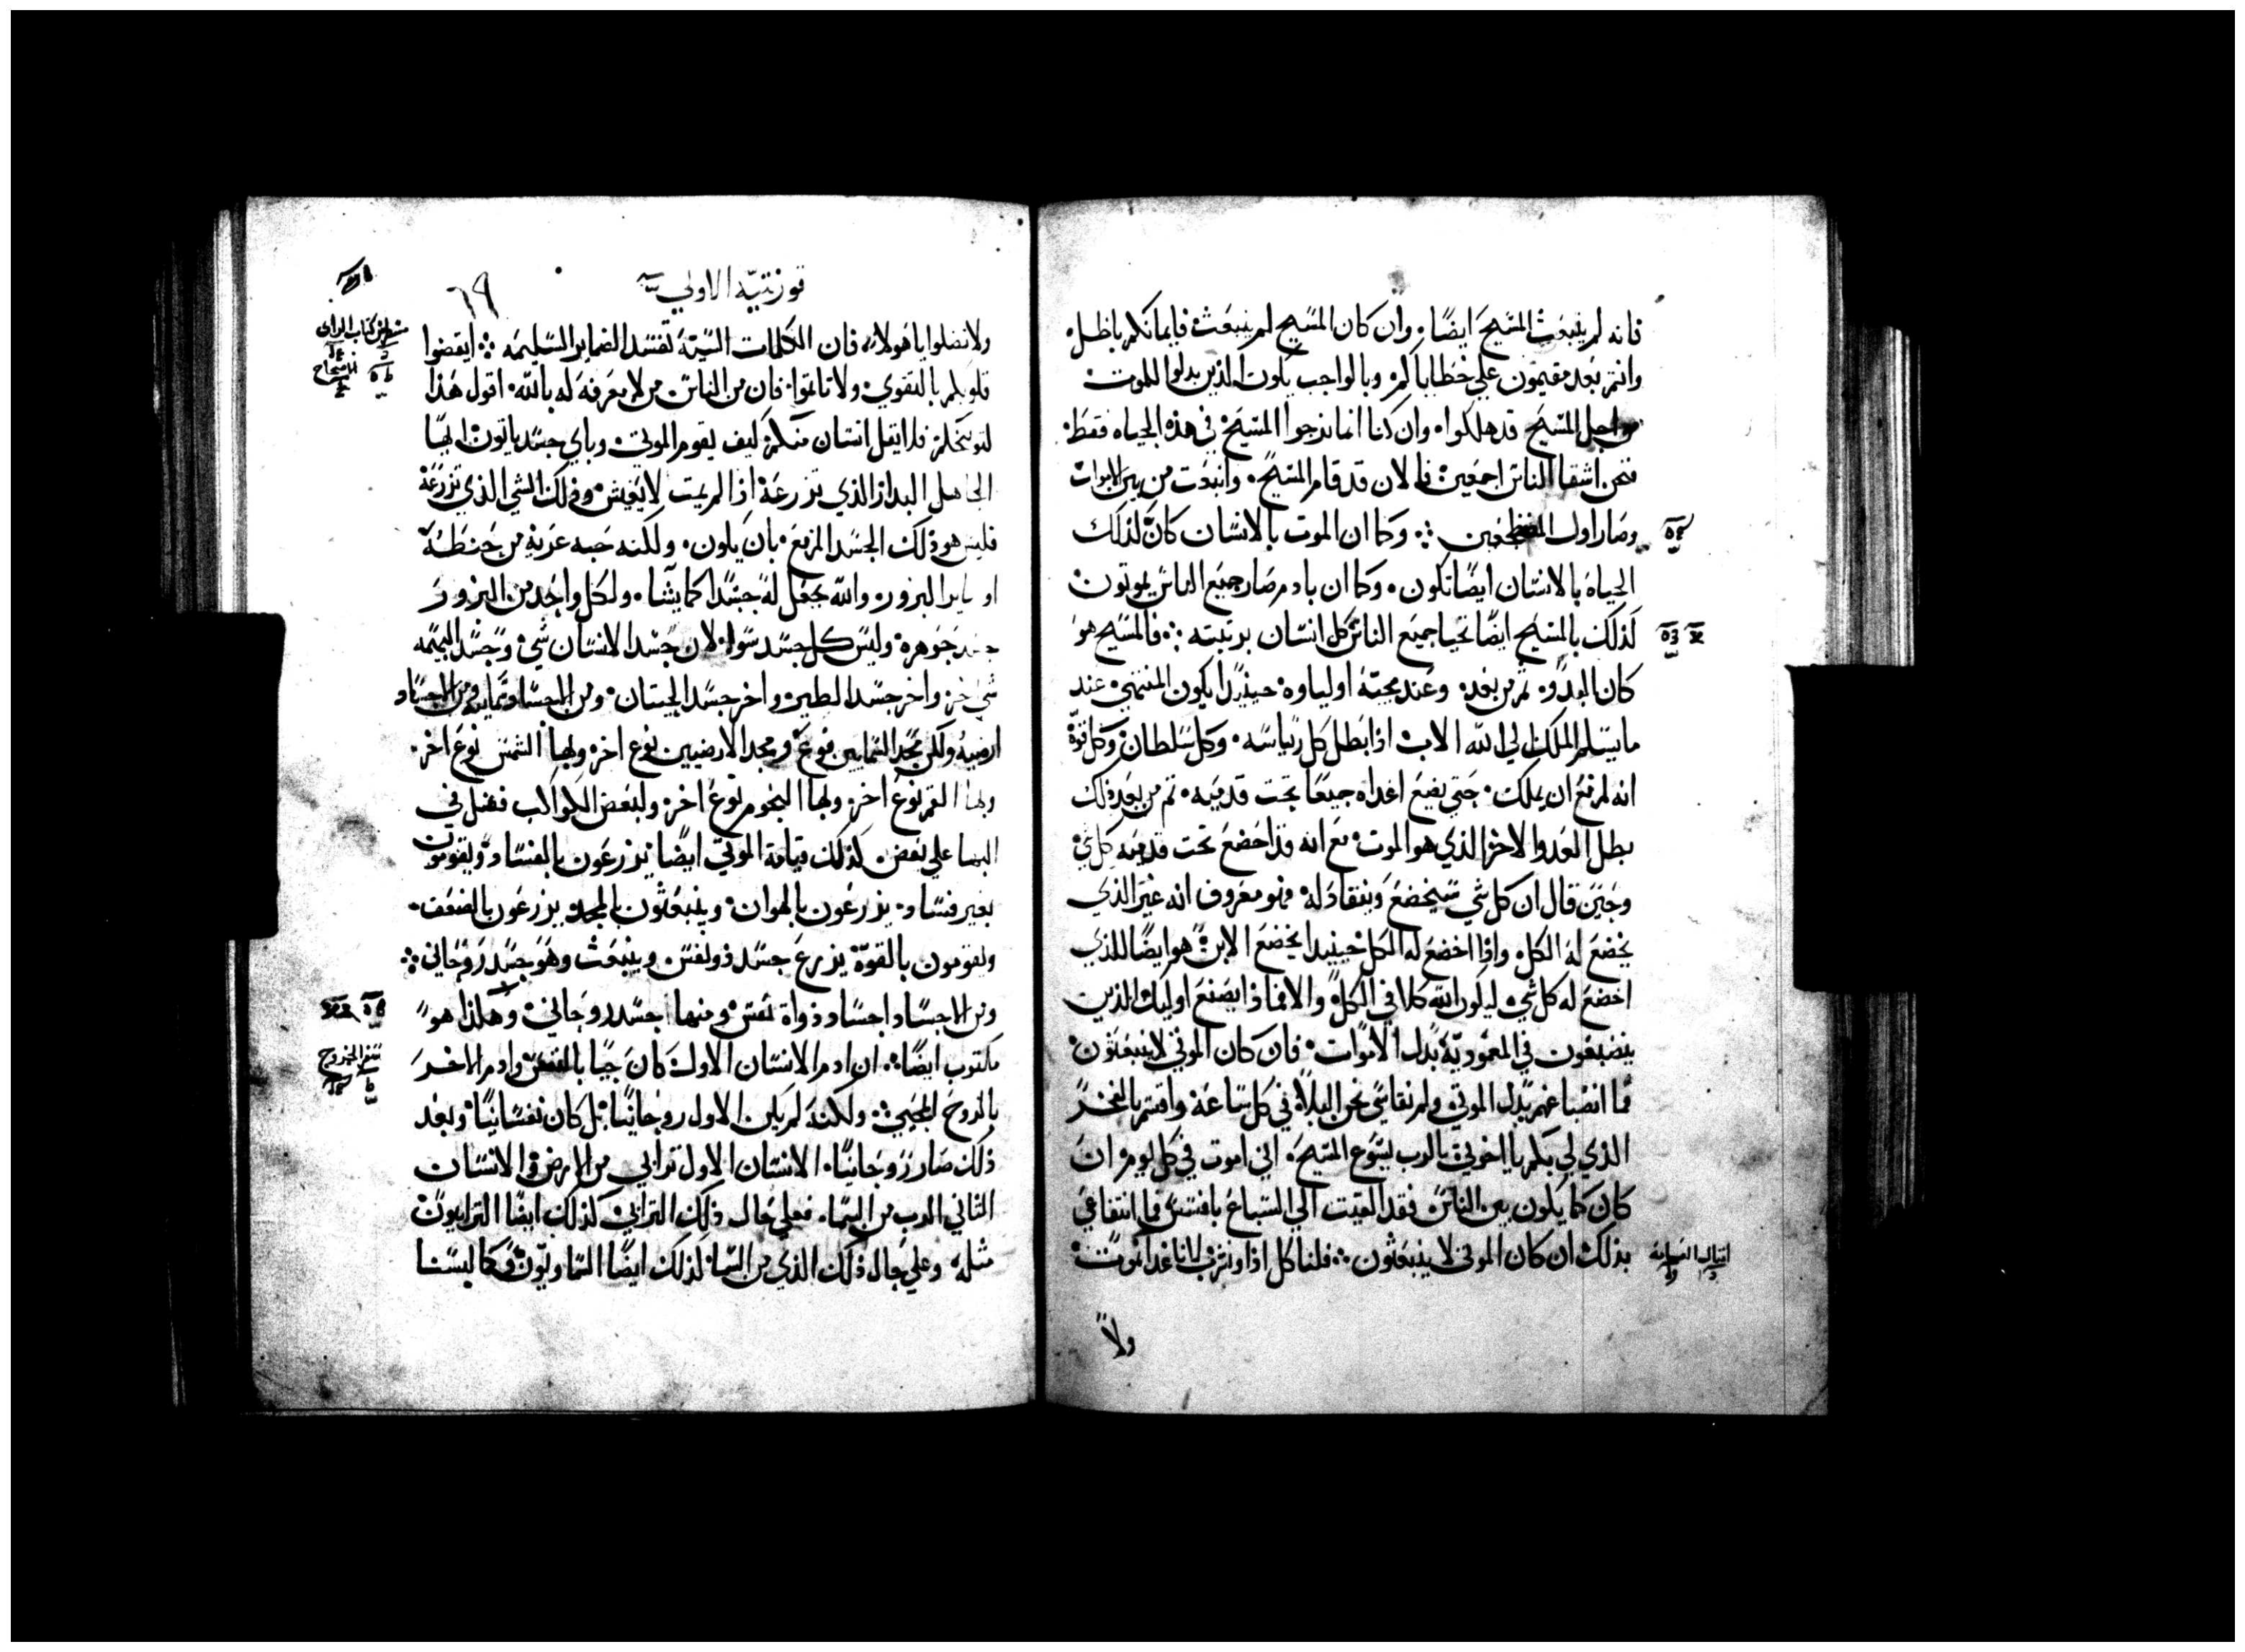 فانه لم ينبعث المسيح ايضًا. وان كان المسيح لم ينبعث فايمانكم باطل.
وانتم بعد مقيمون علي خطاياكم. وبالواجب يكون الذين بدلوا للموت
من اجل المسيح قد هلكوا. وان كنا انما نرجوا المسيح في هذه الحياه فقط.
فنحن اشقا الناس اجمعين فالان قد قام المسيح. وانبعث من بين الاموات
وصار اول المضطجعين ⁘ وكما ان الموت بالانسان كان لذلك
الحياه بالانسان ايضًا تكون. وكما ان بادم صار جميع الناس يموتون
لذلك بالمسيح ايضًا تحيا جميع الناس كل انسان برتبته ⁘ فالمسيح هو
كان البدو. ثم من بعد. وعند مجيئه اولياوه. حينيذًا يكون المنتهي عند
ما يسلم الملك لي الله الاب اذا بطل كل رياسه. وكل سلطان وكل قوة
انه لمزمع ان يملك. حتي يضع اعداه جميعًا تحت قدميه. ثم من بعد ذلك
يبطل العدوا الاخر الذي هو الموت مع انه قد اخضع تحت قدميه كل شي
وحين قال ان كل شي سيخضع وينقاد له. فهو معروف انه غير الذي
يخضع له الكل. واذا اخضع له الكل حينيدا يخضع الابن هو ايضًا للذي
اخضع له كل شي. ليكون الله كلا في الكل. والا فما ذا يصنع اوليك الذين
ينصبغون في المعمودية بدل الاموات. فان كان الموتي لا ينبعثون
فما انصباغهم بدل الموتي. ولم نقاسي نحن البلا في كل ساعة واقسم بالفخر
الذي لي بكم يا اخوتي بالرب يسوع المسيح. اني اموت في كل يوم. وان
كان كما يكون بين الناس فقد القيت الي السباع بافسس فما انتفاعي
بذلك ان كان الموتي لا ينبعثون ⁘ فلناكل اذا ونشرب لاننا غدا نموت
ولا
قورنتيه الاولي
٦٩
ولا تضلوا يا هولاء. فان الكلمات السيئة تفسد الضماير السليمه ⁘ ايقضوا
قلوبكم بالتقوي. ولا تاثموا. فان من الناس من لا معرفة له بالله. اقول هذا
لتوبيخكم. فلا يقل انسان منكم كيف يقوم الموتي. وباي جسد ياتون ايها
الجاهل البدار الذي تزرعه اذا لم يمت لا يعيش وذلك الشي الذي تزرعه
فليس هو ذلك الجسد المزمع بان يكون. ولكنه حبه عريه من حنطه
او ساير البزور. والله يجعل له جسدًا كما يشا. ولكل واحد من البزور
جسد جوهره وليس كل جسد سوا. لان جسد الانسان شي وجسد البهيمه
شي اخر. واخر جسد الطير. واخر جسد الحيتان. ومن الاجساد سمايه ومن الاجساد
ارضيه ولكن مجد السمايين نوع ومجد الارضيين نوع اخر. وبها الشمس نوع اخر.
وبها القمر نوع اخر. وبها النجوم نوع اخر. ولبعض الكواكب فضل في
البها علي بعض. كذلك قيامة الموتي ايضًا يزرعون بالفساد ويقومون
بغير فساد. يزرعون بالهوان. وينبعثون بالمجد يزرعون بالضعف.
ويقومون بالقوة يزرع جسد ذو نفس وينبعث وهو جسد روحاني ⁘
ومن الاجساد اجساد ذواة نفس ومنها جسد روحاني. وهكذا هو
مكتوب ايضًا ⁘ ان ادم الانسان الاول كان حيًا بالنفس وادم الاخر
بالروح المحيي ⁘ ولكنه لم يكن الاول روحانيًا بل كان نفسانيًا وبعد
ذلك صار روحانيًا. الانسان الاول ترابي من الارض والانسان
الثاني الرب من السما. فعلي حال ذلك الترابي كذلك ايضًا الترابيون
مثله. وعلي حال ذلك الذي من السما. لذلك ايضًا السماويون وكما لبسنا
سفر الخروج